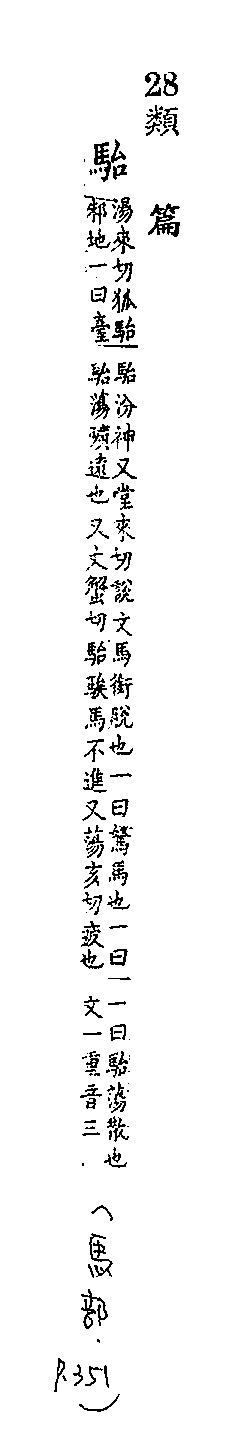 28
類篇
駘
湯來切狐駘
邾地一曰臺
駘汾神又堂來切說文馬銜脫也一曰駑馬也一曰一一曰駘蕩散也
駘蕩遠也又文蟹切駘騃馬不進又蕩亥切疲也 文一重音三.
(馬部.
P.351)